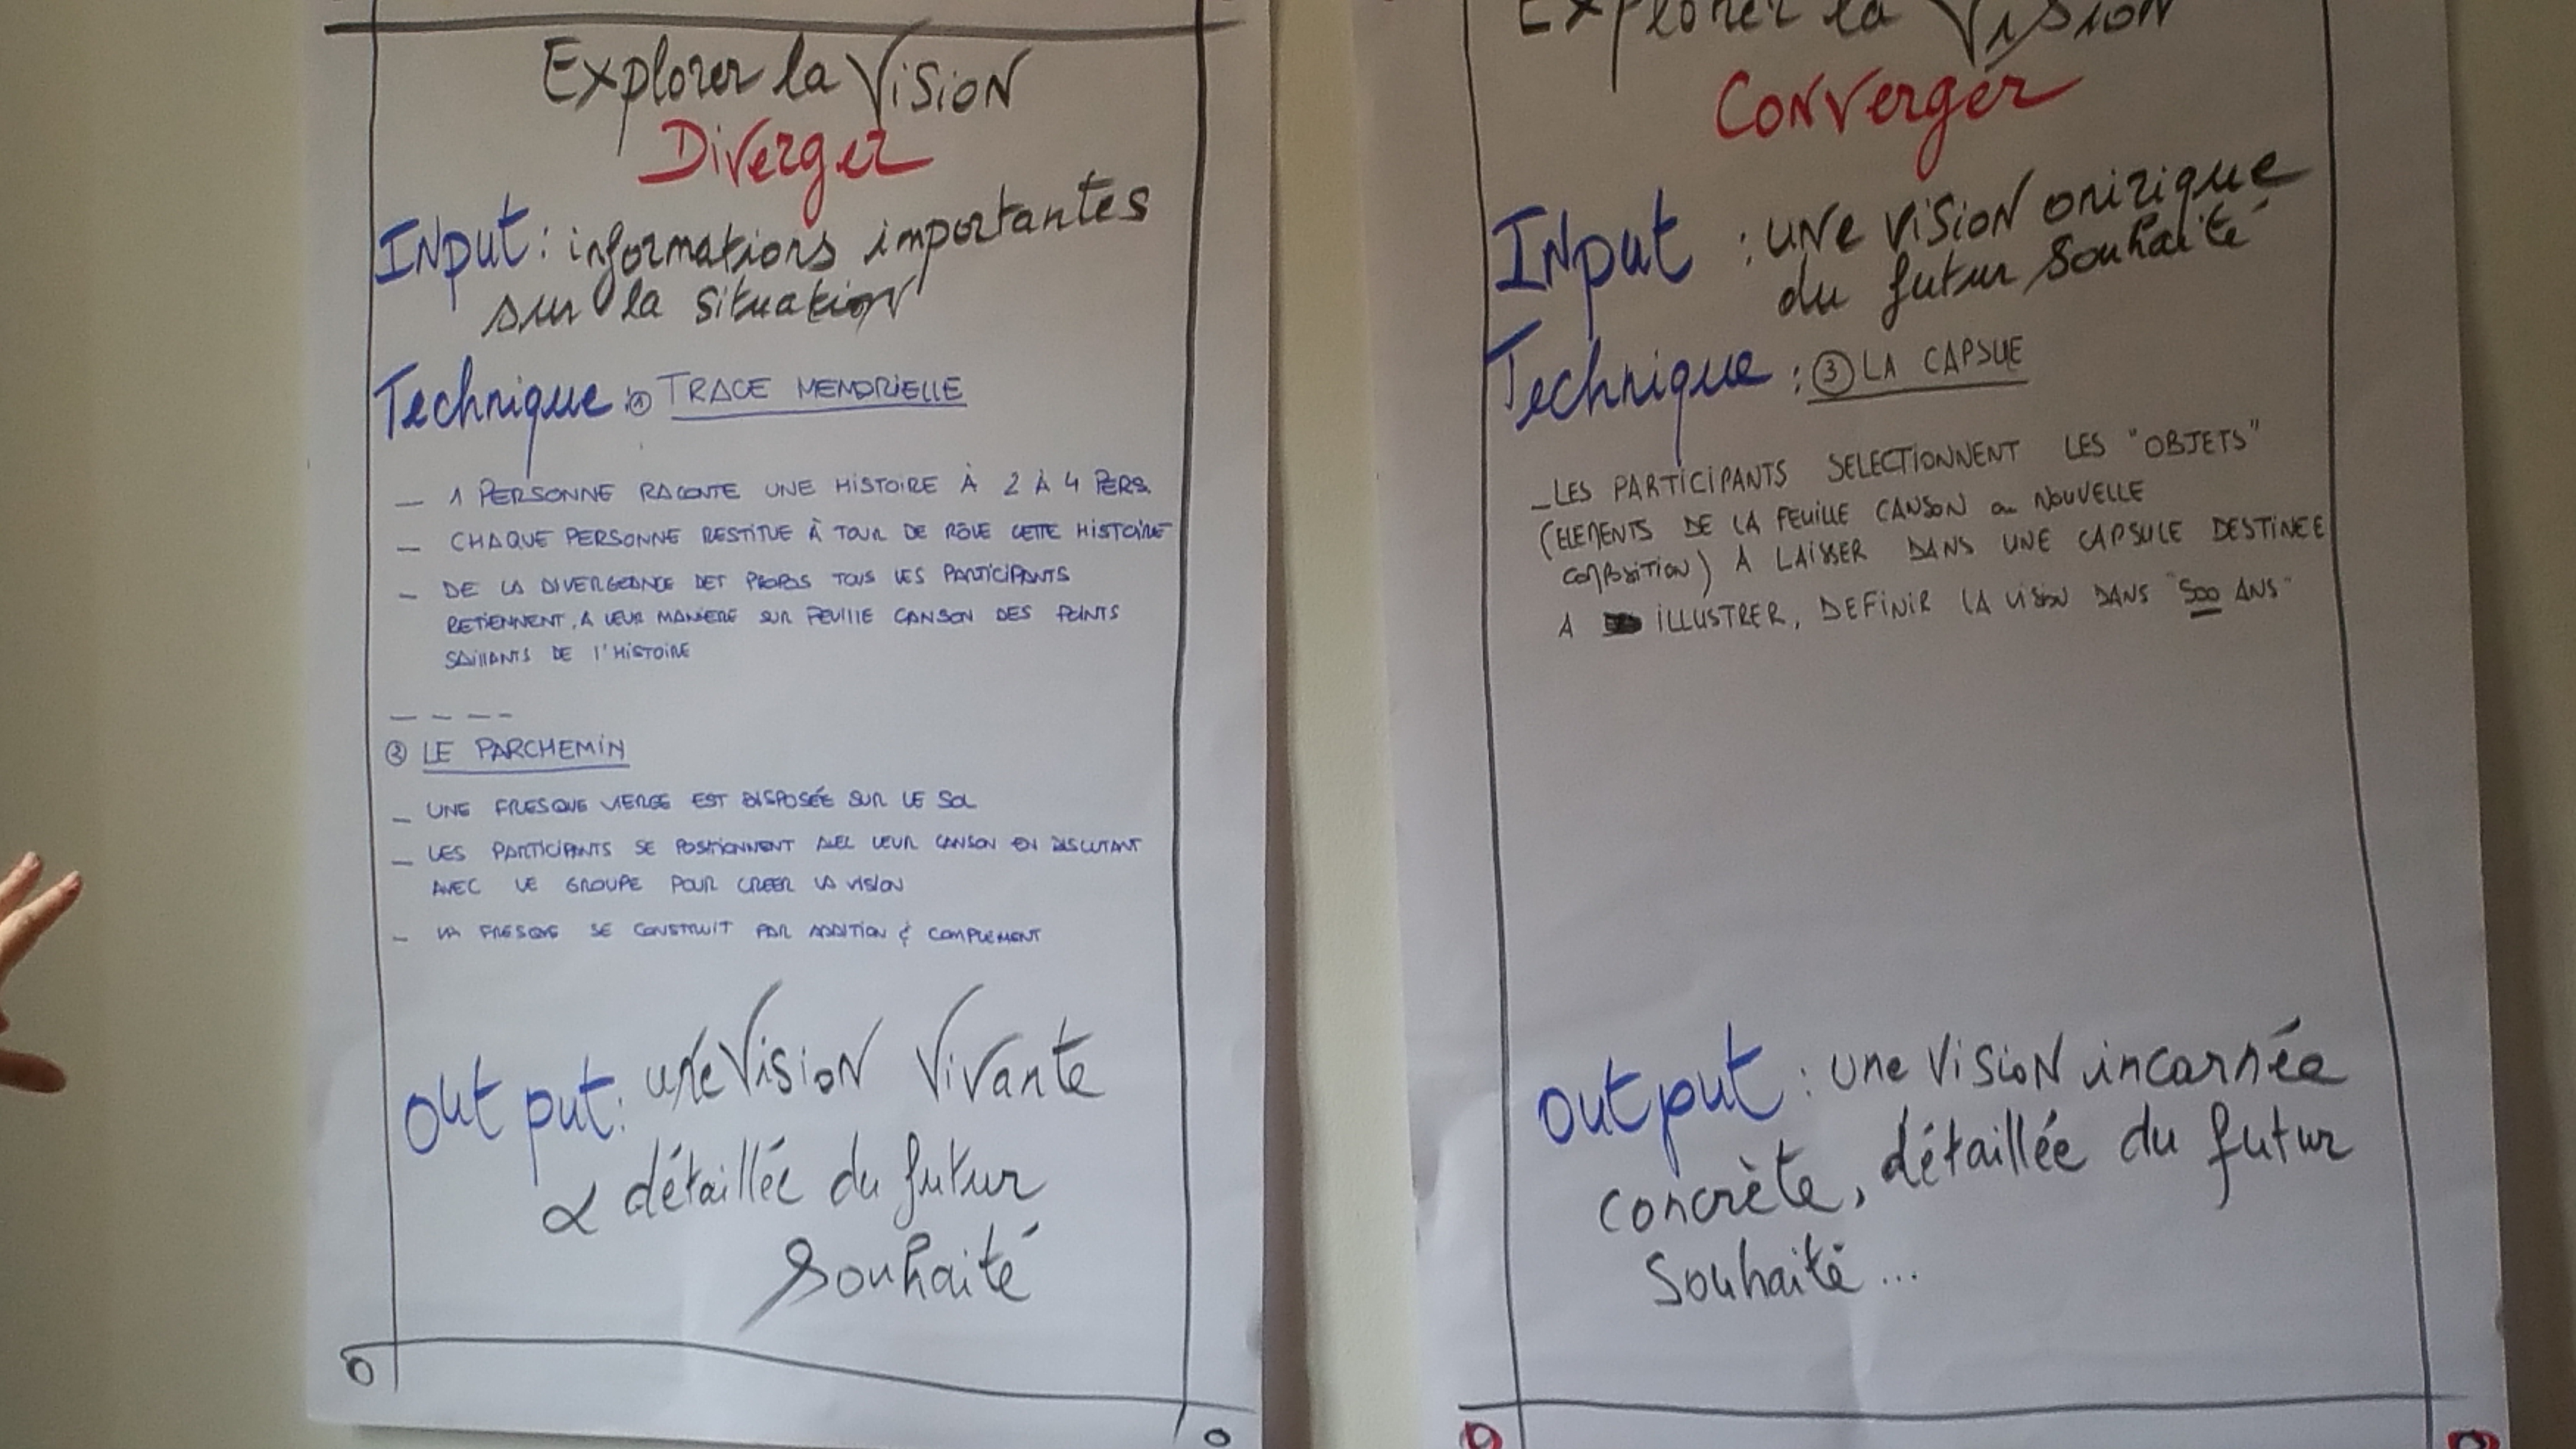 Explorer la Vision
Diverger
Input : informations importantes
sur la situation
Technique : ① TRACE MEMORIELLE
— 1 PERSONNE RACONTE UNE HISTOIRE À 2 À 4 PERS.
— CHAQUE PERSONNE RESTITUE À TOUR DE RÔLE CETTE HISTOIRE
— DE LA DIVERGEANCE DET PROPOS TOUS LES PARTICIPANTS
RETIENNENT, A LEUR MANIERE SUR FEUILLE CANSON DES POINTS
SAILLANTS DE L'HISTOIRE
— — — —
② LE PARCHEMIN
— UNE FRESQUE VIERGE EST DISPOSÉE SUR LE SOL
— LES PARTICIPANTS SE POSITIONNENT AVEC LEUR CANSON EN DISCUTANT
AVEC LE GROUPE POUR CREER LA VISION
— LA FRESQUE SE CONSTRUIT PAR ADDITION & COMPLEMENT
Output : une Vision Vivante
& détaillée du futur
Souhaité
Explorer la Vision
Converger
Input : une vision onirique
du futur souhaité
Technique : ③ LA CAPSUE
— LES PARTICIPANTS SELECTIONNENT LES "OBJETS"
(ELEMENTS DE LA FEUILLE CANSON ou NOUVELLE
COMPOSITION) A LAISSER DANS UNE CAPSULE DESTINEE
A ILLUSTRER, DEFINIR LA VISION DANS "500 ANS"
Output : une Vision incarnée
concrète, détaillée du futur
Souhaité ...